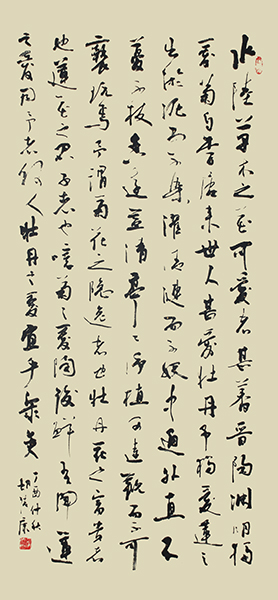 水陸草木之花可愛者甚蕃晉陶淵明獨
愛菊自李唐来世人甚愛牡丹予獨愛蓮之
出淤泥而不染濯清漣而不妖中通外直不
蔓不枝香遠益清亭々净植可遠觀而不可
褻玩焉予謂菊花之隐逸者也牡丹花之富貴者
也蓮花之君子者也噫菊之愛陶後鮮有聞蓮
之愛同予者何人牡丹之愛宜乎衆矣
丁酉仲秋